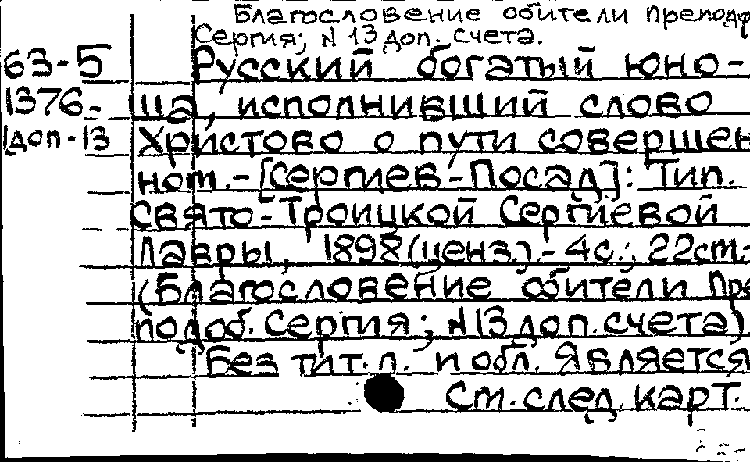 Благословение обители Преподоб
Сергия; N 13 доп. счета.
63-5 Русский богатый юно-
1376- ша, исполнивший слово
1доп-13 Христово о пути совершен
ном.-[Сергиев-Посад]: Тип.
Свято-Троицкой Сергиевой
Лавры, 1898 (ценз.).- 4с.; 22см.-
(Благословение обители Пре
подоб. Сергия; N13 доп. счета)
Без тит. л. и обл. Является
См. след. карт.